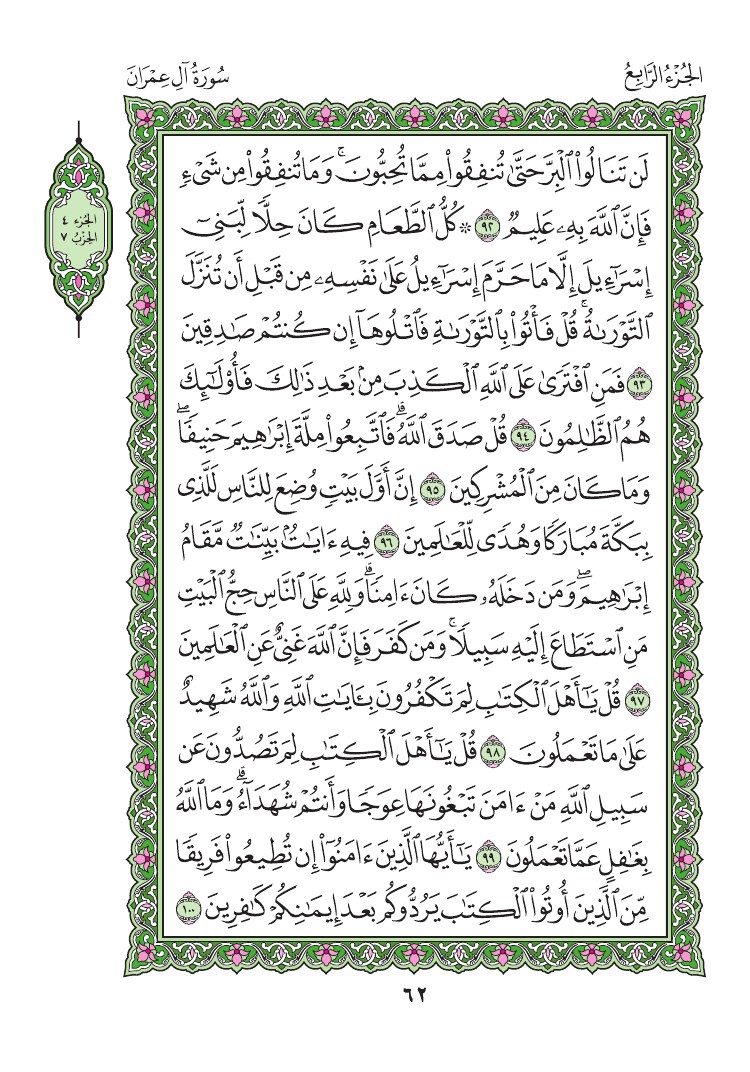 الجُزْءُ الرَّابِعُ
سُورَةُ آلِ عِمْرَانَ
الجزء ٤
الحِزْبُ ٧
لَن تَنَالُوا۟ ٱلْبِرَّ حَتَّىٰ تُنفِقُوا۟ مِمَّا تُحِبُّونَ ۚ وَمَا تُنفِقُوا۟ مِن شَىْءٍ
فَإِنَّ ٱللَّهَ بِهِۦ عَلِيمٌ ٩٢ ۞ كُلُّ ٱلطَّعَامِ كَانَ حِلًّا لِّبَنِىٓ
إِسْرَٰٓءِيلَ إِلَّا مَا حَرَّمَ إِسْرَٰٓءِيلُ عَلَىٰ نَفْسِهِۦ مِن قَبْلِ أَن تُنَزَّلَ
ٱلتَّوْرَىٰةُ ۗ قُلْ فَأْتُوا۟ بِٱلتَّوْرَىٰةِ فَٱتْلُوهَآ إِن كُنتُمْ صَٰدِقِينَ
٩٣ فَمَنِ ٱفْتَرَىٰ عَلَى ٱللَّهِ ٱلْكَذِبَ مِنۢ بَعْدِ ذَٰلِكَ فَأُو۟لَٰٓئِكَ
هُمُ ٱلظَّٰلِمُونَ ٩٤ قُلْ صَدَقَ ٱللَّهُ ۗ فَٱتَّبِعُوا۟ مِلَّةَ إِبْرَٰهِيمَ حَنِيفًا ۖ
وَمَا كَانَ مِنَ ٱلْمُشْرِكِينَ ٩٥ إِنَّ أَوَّلَ بَيْتٍ وُضِعَ لِلنَّاسِ لَلَّذِى
بِبَكَّةَ مُبَارَكًا وَهُدًى لِّلْعَٰلَمِينَ ٩٦ فِيهِ ءَايَٰتٌۢ بَيِّنَٰتٌ مَّقَامُ
إِبْرَٰهِيمَ ۖ وَمَن دَخَلَهُۥ كَانَ ءَامِنًا ۗ وَلِلَّهِ عَلَى ٱلنَّاسِ حِجُّ ٱلْبَيْتِ
مَنِ ٱسْتَطَاعَ إِلَيْهِ سَبِيلًا ۚ وَمَن كَفَرَ فَإِنَّ ٱللَّهَ غَنِىٌّ عَنِ ٱلْعَٰلَمِينَ
٩٧ قُلْ يَٰٓأَهْلَ ٱلْكِتَٰبِ لِمَ تَكْفُرُونَ بِـَٔايَٰتِ ٱللَّهِ وَٱللَّهُ شَهِيدٌ
عَلَىٰ مَا تَعْمَلُونَ ٩٨ قُلْ يَٰٓأَهْلَ ٱلْكِتَٰبِ لِمَ تَصُدُّونَ عَن
سَبِيلِ ٱللَّهِ مَنْ ءَامَنَ تَبْغُونَهَا عِوَجًا وَأَنتُمْ شُهَدَآءُ ۗ وَمَا ٱللَّهُ
بِغَٰفِلٍ عَمَّا تَعْمَلُونَ ٩٩ يَٰٓأَيُّهَا ٱلَّذِينَ ءَامَنُوٓا۟ إِن تُطِيعُوا۟ فَرِيقًا
مِّنَ ٱلَّذِينَ أُوتُوا۟ ٱلْكِتَٰبَ يَرُدُّوكُم بَعْدَ إِيمَٰنِكُمْ كَٰفِرِينَ ١٠٠
٦٢